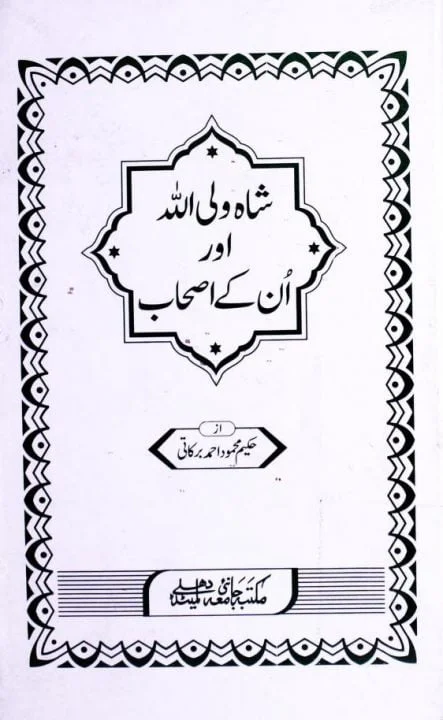 شاہ ولی اللہ
اور
اُن کے اصحاب
از
حکیم محمود احمد برکاتی
مکتبہ جامعہ نئی دہلی لمیٹڈ